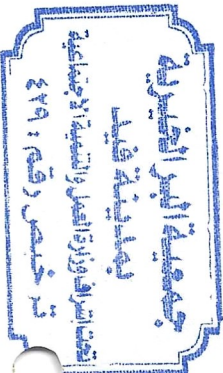 جمعية البر الخيرية
بمدينة فيد
تحت اشراف وزارة العمل والتنمية الاجتماعية
ترخيص رقم : ٤٢٩